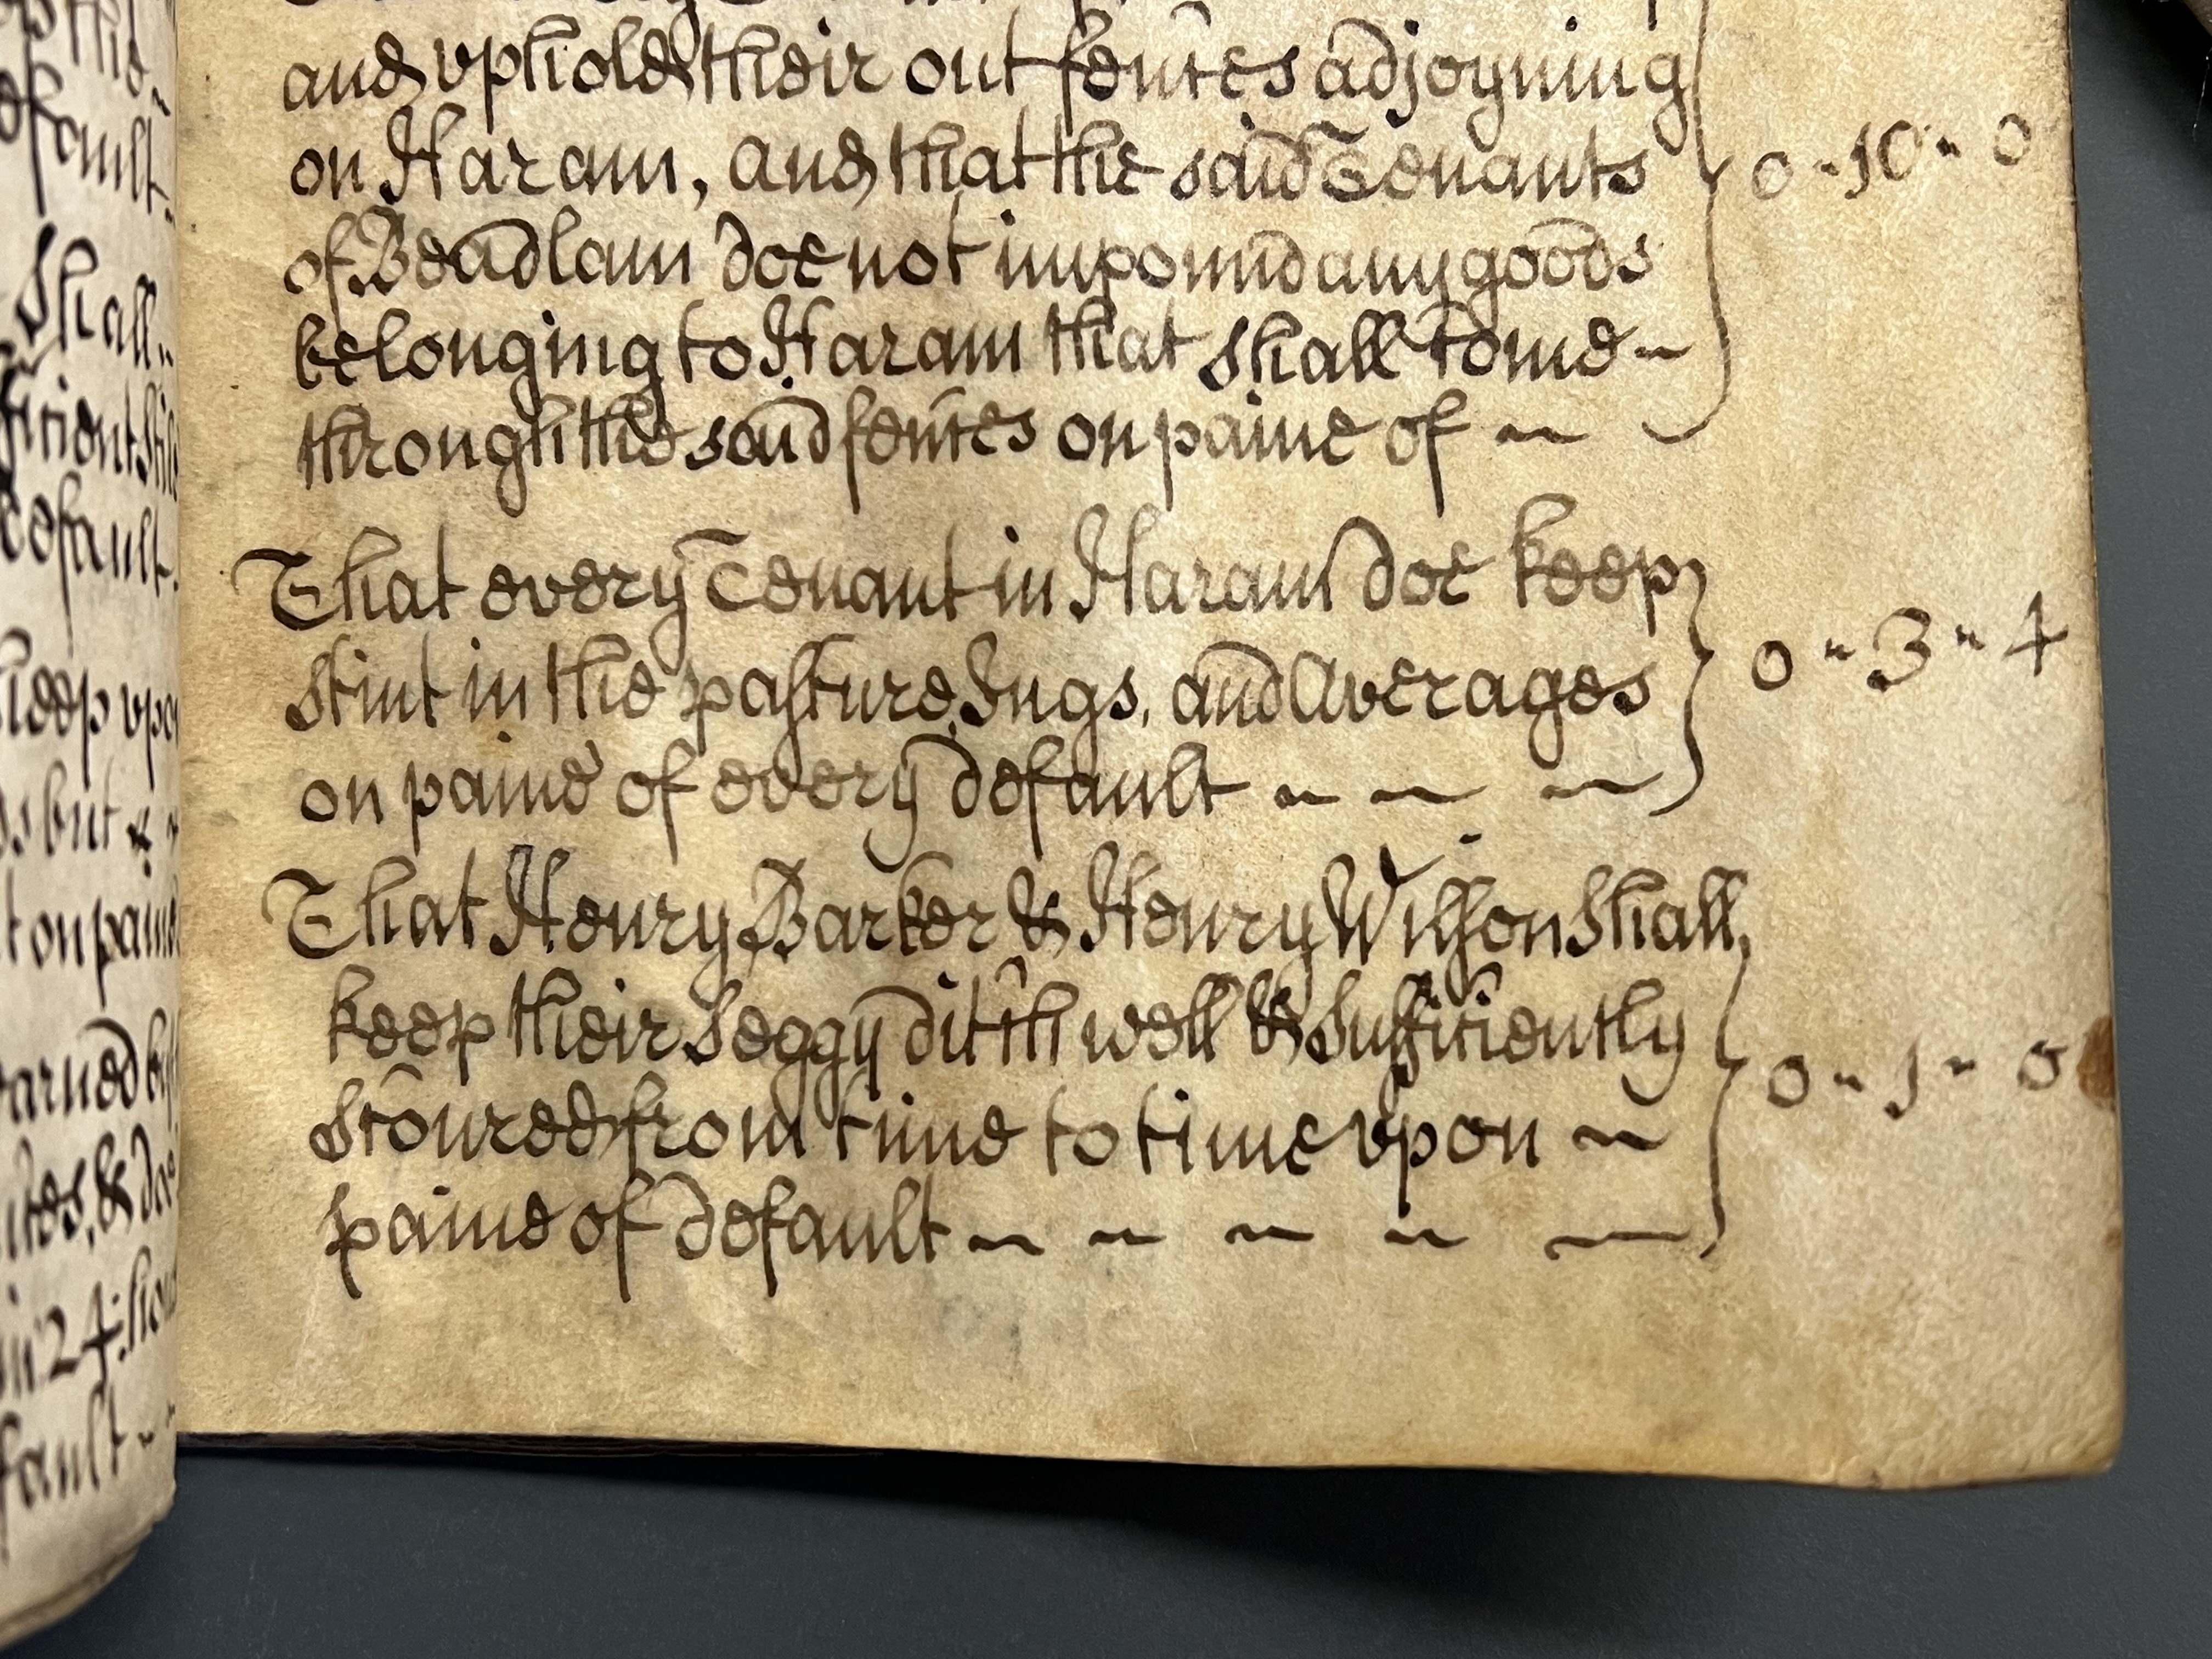 and vphold their out fences adjoyning
on Haram, and that the said Tenants 0 - 10 - 0
of Beadlam doe not impound any goods
belonging to Haram that shall come
through the said fences on paine of
That every Tenant in Haram doe keep
stint in the pasture, Ings, and Averages 0 - 3 - 4
on paine of every default
That Henry Barker & Henry Willson shall
keep their Seggy ditch well & sufficiently
scoured from time to time vpon 0 - 1 - 0
paine of default
efault
Shall
ficient stile
default
sheep vpo
but
t on paine
& doe
in 24: hou
fault